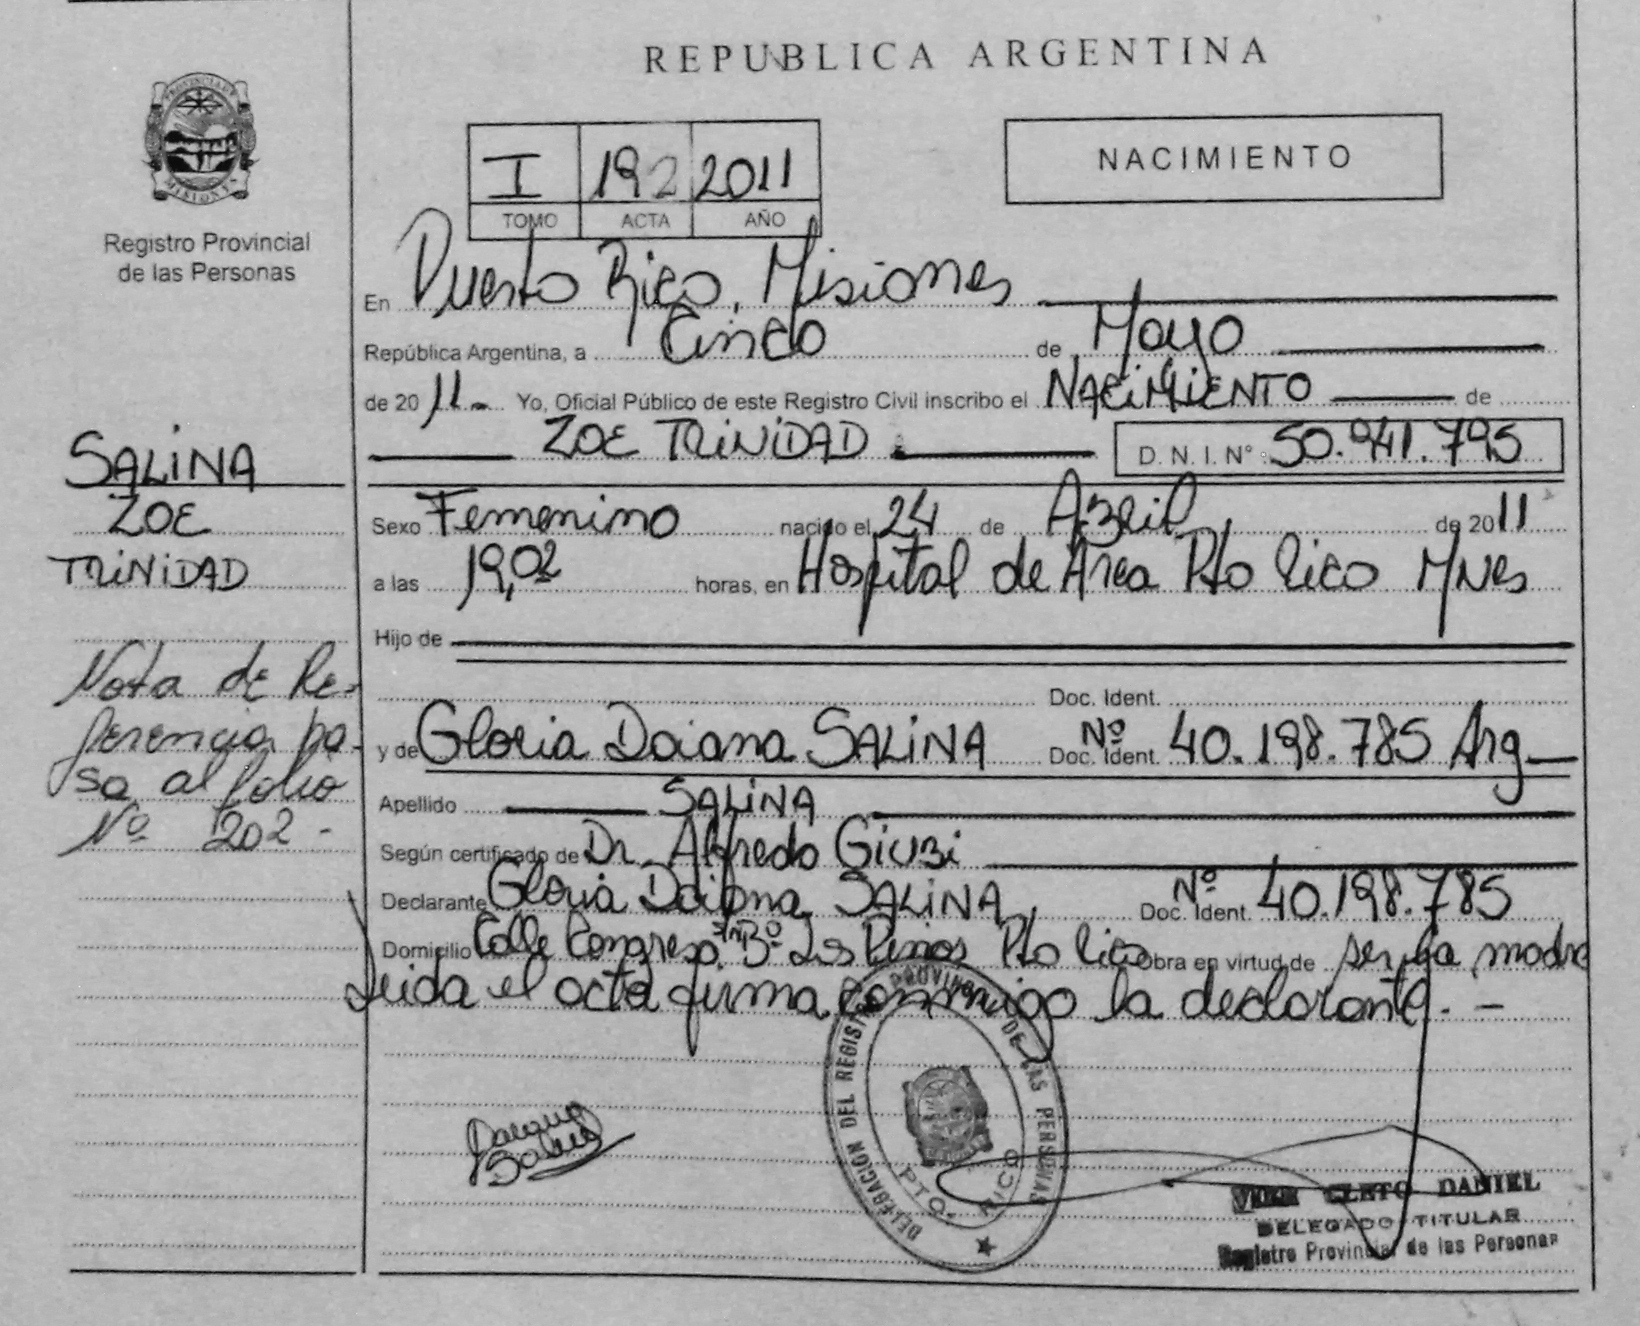 REPUBLICA ARGENTINA
PROVINCIA DE
MISIONES
Registro Provincial
de las Personas
I 192 2011
TOMO ACTA AÑO
NACIMIENTO
En Puerto Rico, Misiones
República Argentina, a Cinco de Mayo
de 2011.- Yo, Oficial Público de este Registro Civil inscribo el NACIMIENTO de
ZOE TRINIDAD D. N. I. N° 50.941.795
Sexo Femenino nacido el 24 de Abril de 2011
a las 19,02 horas, en Hospital de Area Pto Rico Mnes
Hijo de
Doc. Ident.
y de Gloria Daiana SALINA Doc. Ident. Nº 40.198.785 Arg
Apellido SALINA
Según certificado de Dr. Alfredo Giubi
Declarante Gloria Daiana SALINA Doc. Ident. Nº 40.198.785
Domicilio Calle Congreso Bº Los Pinos Pto Rico Obra en virtud de ser la madre
Leida el acta firma conmigo la declarante. -
SALINA
ZOE
TRINIDAD
Nota de Re-
ferencia pa-
sa al folio
Nº 202 -
DELEGACION DEL REGISTRO PROVINCIAL DE LAS PERSONAS
PTO. RICO
CLETO DANIEL
DELEGADO TITULAR
Registro Provincial de las Personas